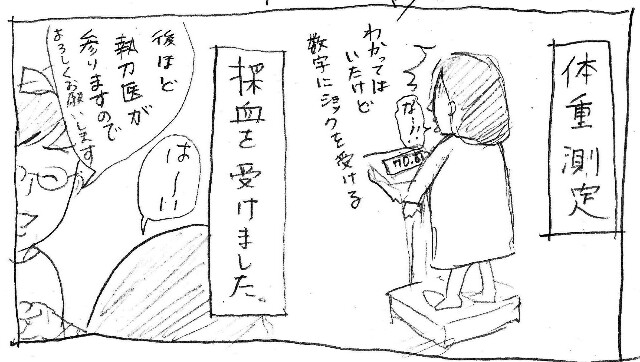 体重測定
うっ
な…!!
70.6
わかっては
いたけど
数字にショックを受ける
採血を受けました。
後ほど
執刀医が
参りますので
よろしくお願いします
は〜い